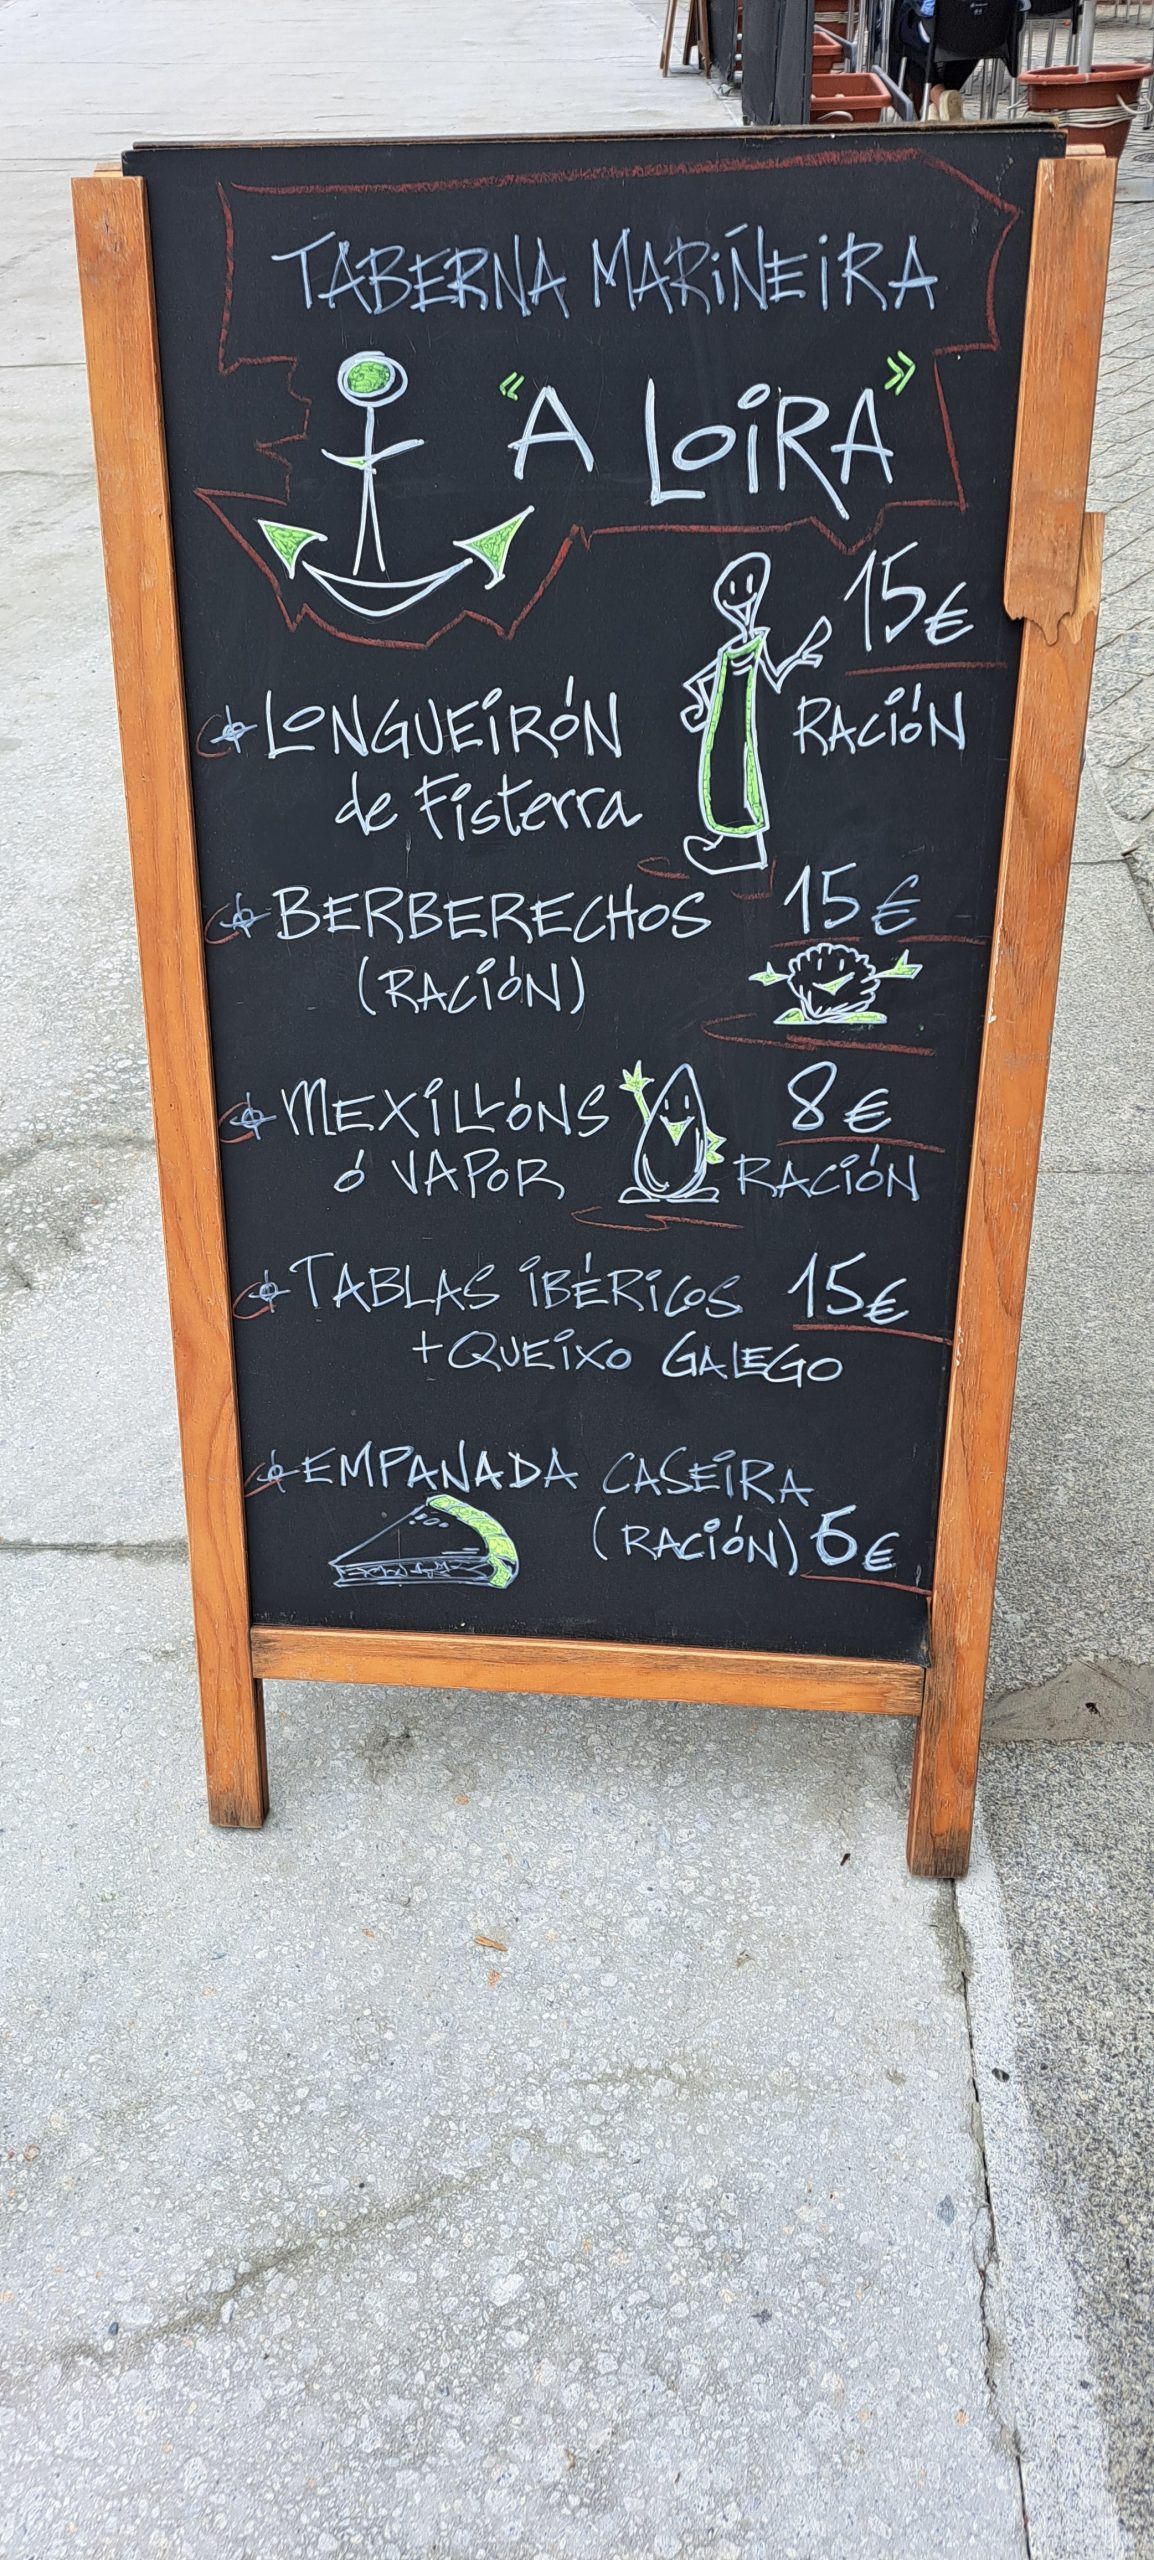 TABERNA MARIÑEIRA
"A LOIRA"
15€
LONGUEIRÓN RACIÓN
de Fisterra
BERBERECHOS 15€
(RACIÓN)
MEXILLÓNS 8€
ó VAPOR RACIÓN
TABLAS IBÉRICOS 15€
+QUEIXO GALEGO
EMPANADA CASEIRA
(RACIÓN) 6€